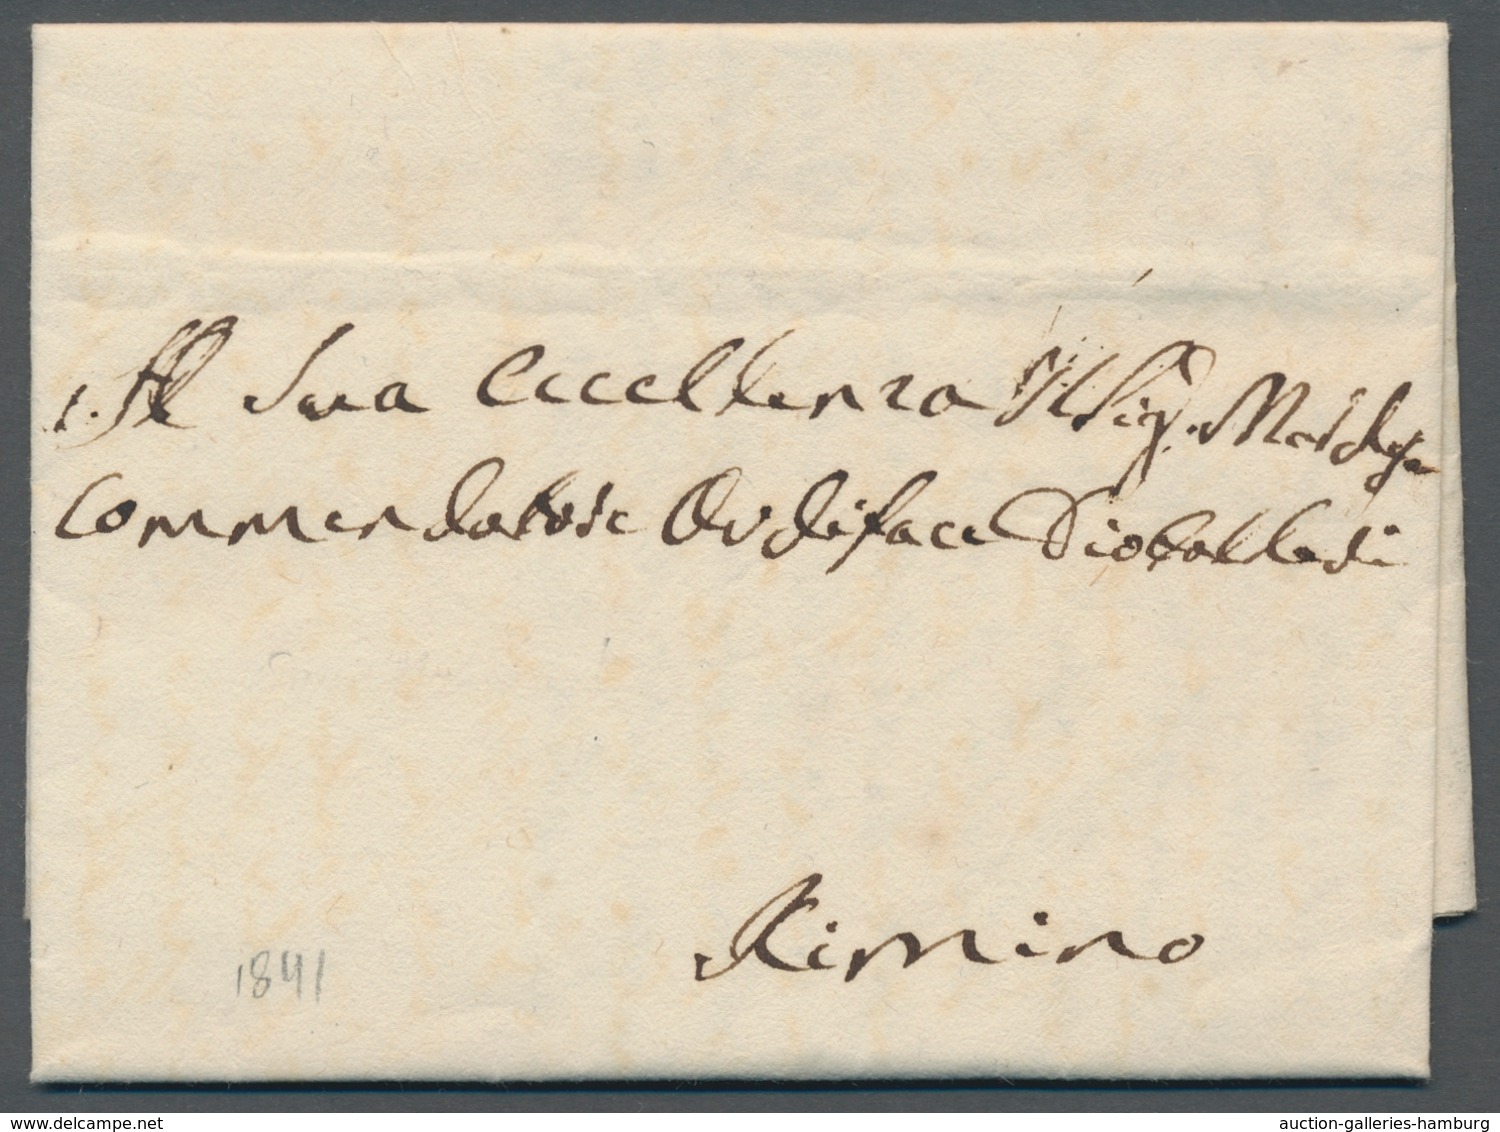 Al Sua Eccellenza Il Sig. Marchese
Commendatore Audiface Diotallevi
Rimino
1841
www.delcampe.net
auction-galleries-hamburg